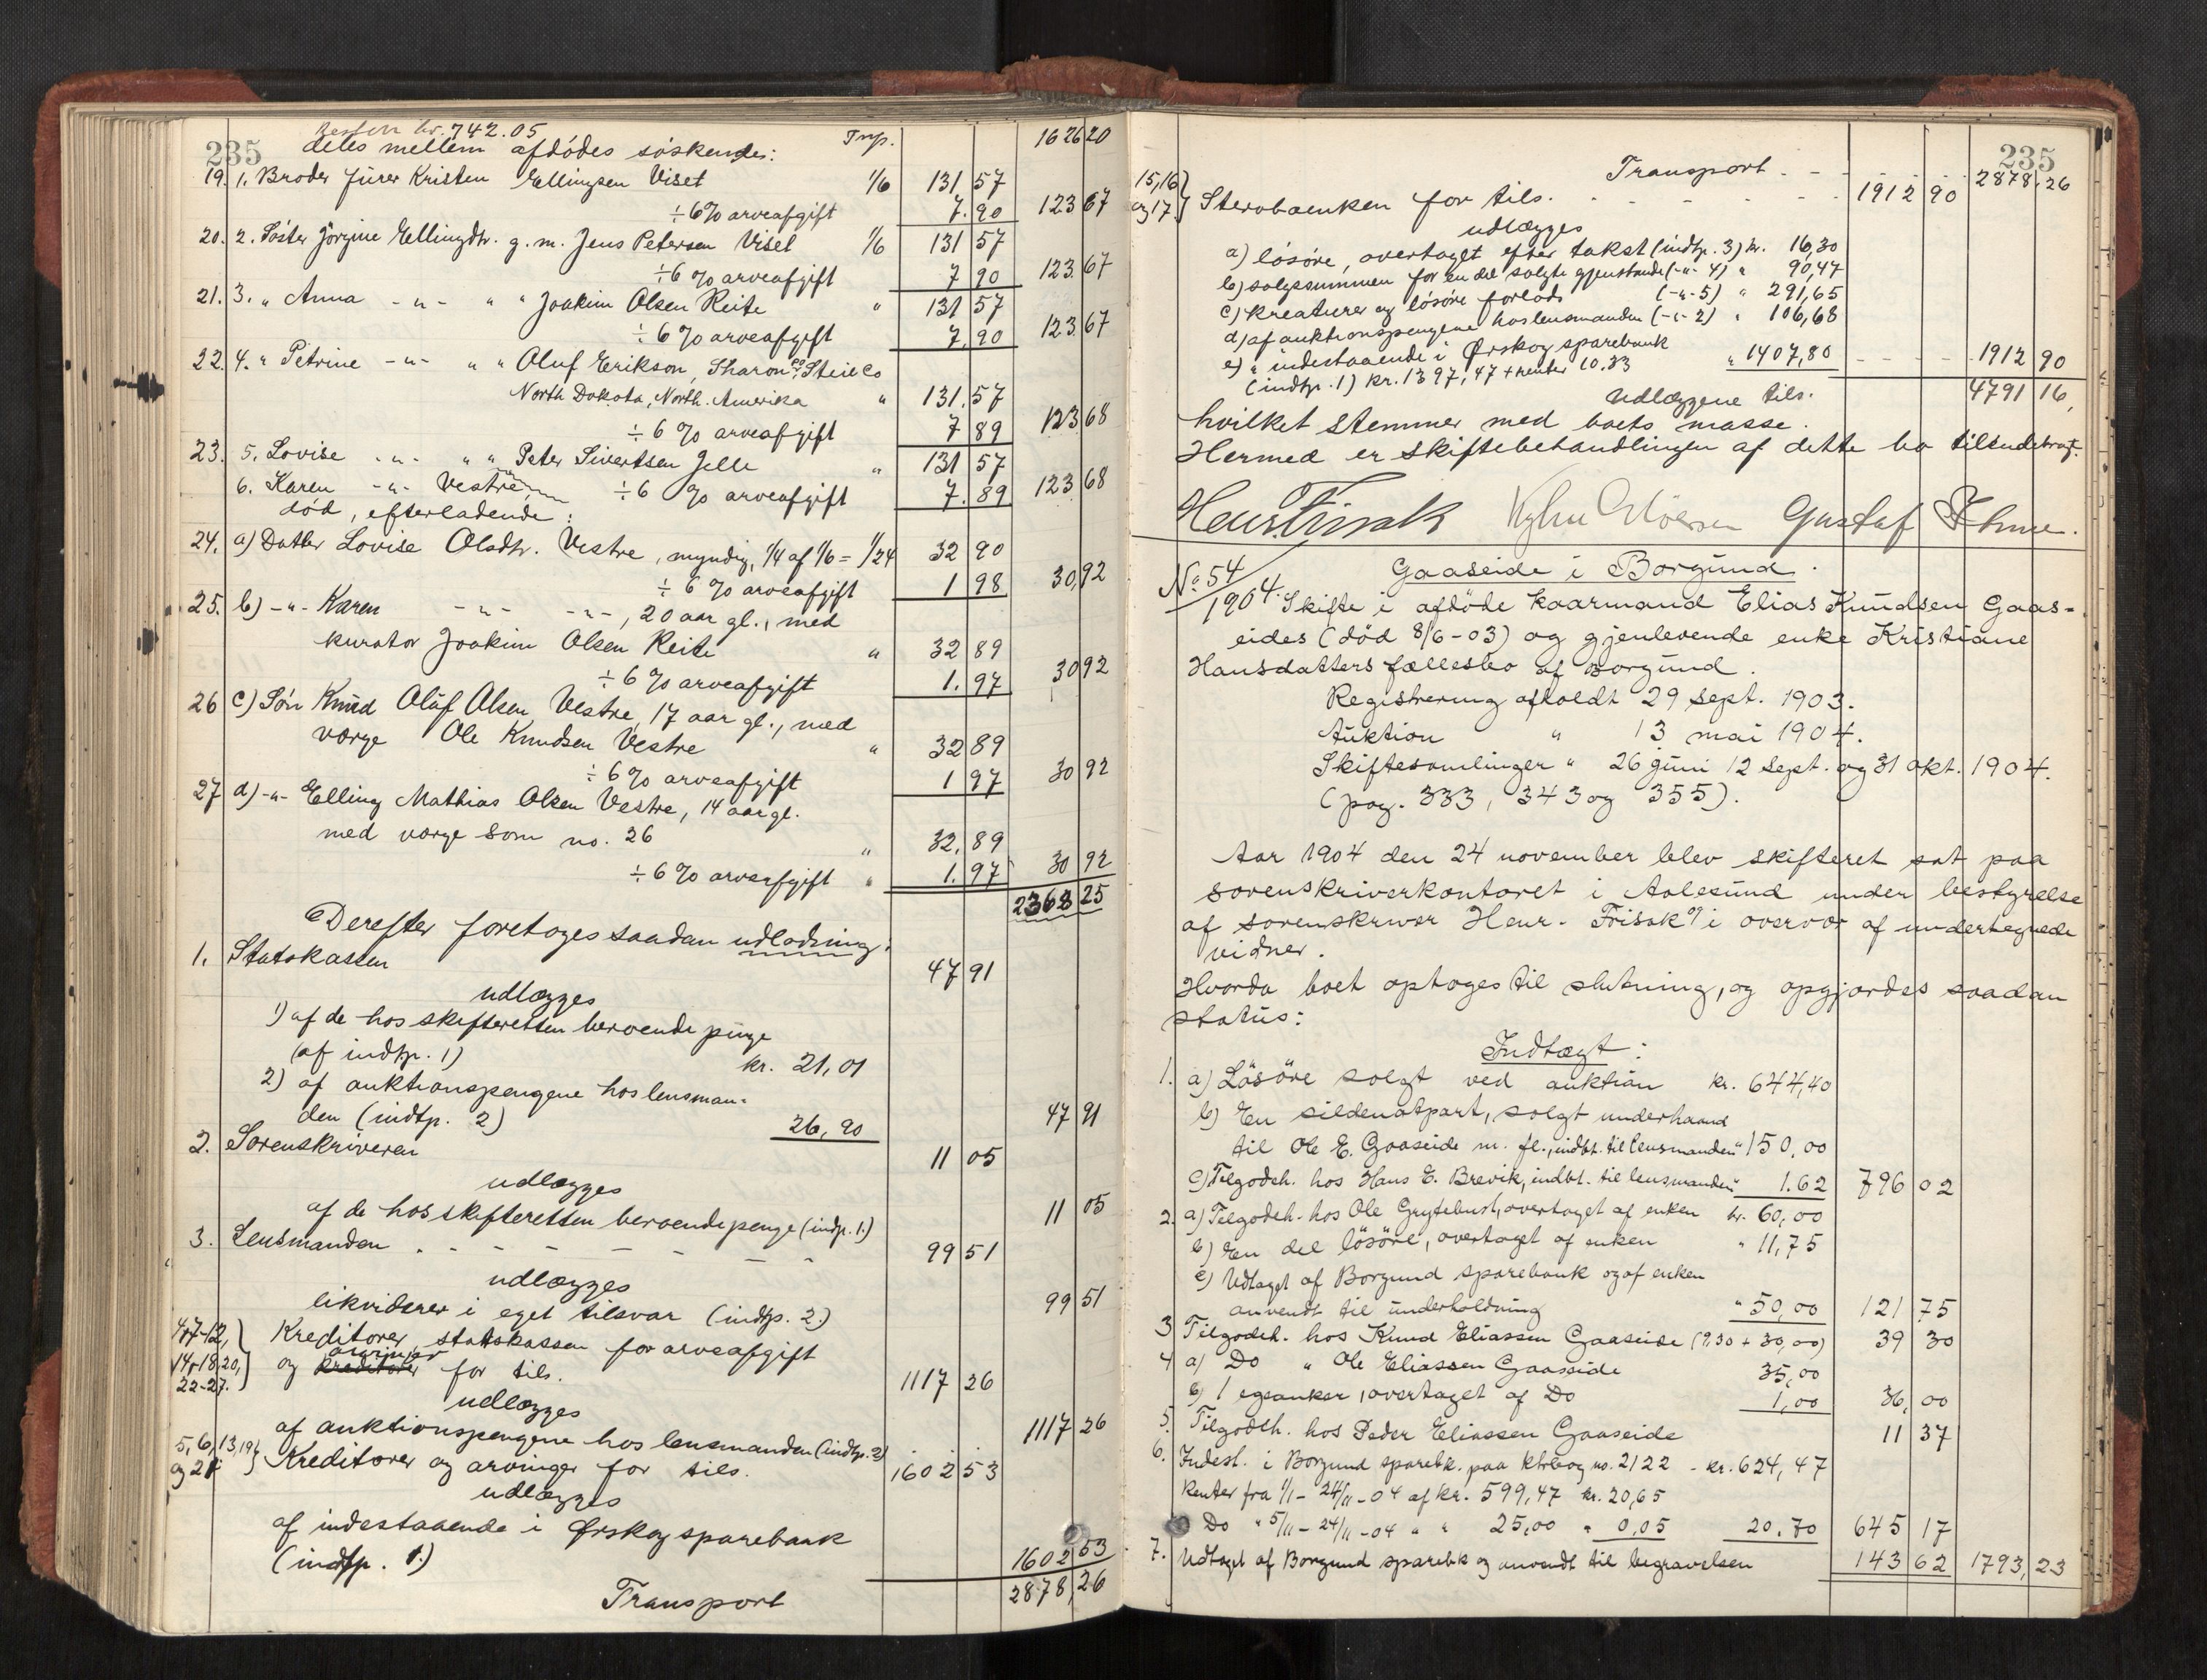 235
Resten kr. 742.05
deles mellem afdødes søskende: Trsp. 1626 20
19. 1. Broder Jürer Kristen Ellingsen Viset 1/6 131 57
÷ 6% arveafgift 7.90 123 67
20. 2. Søster Jørgine Ellingsdtr. g. m. Jens Petersen Viset 1/6 131 57
÷ 6% arveafgift 7 90 123 67
21. 3. " Anna -"- " " Joakim Olsen Reite " 131 57
÷ 6% arveafgift 7.90 123 67
22. 4. " Petrine -"- " " Oluf Erikson, Sharon P.O. Steil Co
North Dakota, North. Amerika " 131.57
÷ 6% arveafgift 7 89 123 68
23. 5. Lovise -"- " " Peter Sivertsen Jelle " 131 57
6. Karen -"- Vestre, ÷ 6 % arveafgift 7.89 123 68
død, efterladende:
24. a) Datter Lovise Olsdtr. Vestre, myndig, 1/4 af 1/6 = 1/24 32 90
÷ 6% arveafgift 1 98 30,92
25. b) -"- Karen -"- -"-, 20 aar gl., med
kurator Joakim Olsen Reite " 32 89
÷ 6% arveafgift 1.97 30 92
26 c) Søn Knud Oluf Olsen Vestre, 17 aar gl., med
værge Ole Knudsen Vestre " 32 89
÷ 6% arveafgift 1 97 30 92
27 d) -"- Elling Mathias Olsen Vestre, 14 aar gl.
med værge som no. 26 " 32.89
÷ 6% arveafgift " 1.97 30 92
2368 25
Derefter foretoges saadan udlodning:
1. Statskassen 47 91
udlægges
1) af de hos skifteretten beroende penge
(af indtp. 1) kr. 21,01
2) af auktionspengene hos lensman-
den (indtp. 2) 26,90 47 91
2. Sorenskriveren 11 05
udlægges
af de hos skifteretten beroende penge (indtp. 1.) 11 05
3. Lensmanden 99 51
udlægges
likviderer i eget tilsvar (indtp. 2.) 99 51
4, 7-12, Kreditorer, statskassen for arveafgift
14-18, 20, og kreditorer arvinger for tils. 1117 26
22-27.
udlægges
af auktionspengene hos lensmanden (indtp. 2) 1117 26
5, 6, 13, 19 Kreditorer og arvinger for tils. 1602 53
og 21
udlægges
af indestaaende i Ørskog sparebank
(indtp. 1.) 1602 53
Transport 2878,26
235
Transport 2878,26
15,16 og 17. Stervboenken for tils. 1912 90
udlægges
a) løsøre, overtaget efter takst (indtp. 3) kr. 16,30
b) salgssummen for en del solgte gjenstande (-"- 4) " 90,47
c) kreaturer og løsøre forlods (-"- 5) " 291,65
d) af auktionspengene hos lensmanden (-"- 2) " 106,68
e) " indestaaende i Ørskog sparebank
(indtp. 1) kr. 1397,47 + renter 10.33 " 1407,80 1912 90
Udlæggene tils. 4791 16,
hvilket stemmer med boets masse.
Hermed er skiftebehandlingen af dette bo tilendebragt.
Henr. Frisak Gustaf
No. 54/1904. Gaaseide i Borgund.
Skifte i afdøde kaarmand Elias Knudsen Gaas-
eides (død 8/6-03) og gjenlevende enke Kristiane
Hansdatters fællesbo af Borgund.
Registrering afholdt 29 sept. 1903.
Auktion " 13 mai 1904.
Skiftesamlinger " 26 juni 12 sept. og 31 okt. 1904.
(pag. 333, 343 og 355).
Aar 1904 den 24 november blev skifteret sat paa
sorenskriverkontoret i Aalesund under bestyrelse
af sorenskriver Henr. Frisak og i overvær af undertegnede
vidner.
Hvorda boet optoges til slutning, og opgjordes saadan
status:
Indtægt:
1. a) Løsøre solgt ved auktion kr. 644,40
b) En sildenotpart, solgt underhaand
til Ole E. Gaaseide m. fl., indbt. til lensmanden " 150,00
c) Tilgodeh. hos Hans E. Brevik, indbt. til lensmanden " 1.62 796 02
2. a) Tilgodeh. hos Ole Grytebust, overtaget af enken kr. 60,00
b) En del løsøre, overtaget af enken " 11,75
c) Udtaget af Borgund sparebank og af enken
anvendt til underholdning " 50,00 121 75
3 Tilgodeh. hos Knud Eliassen Gaaseide (9,30 + 30,00) 39 30
4 a) Do " Ole Eliassen Gaaseide 35,00
b) 1 egeanker, overtaget af Do 1,00 36,00
5. Tilgodeh. hos Peder Eliassen Gaaseide 11 37
6. Indest. i Borgund sparebk. paa ktrbog no. 2122 - kr. 624,47
Renter fra 1/1 - 24/11 - 04 af kr. 599,47 kr. 20,65
Do " 5/11 - 24/11 - 04 " " 25,00 " 0,05 20.70 645 17
7. Udtaget af Borgund sparebk og anvendt til begravelsen 143 62 1793,23